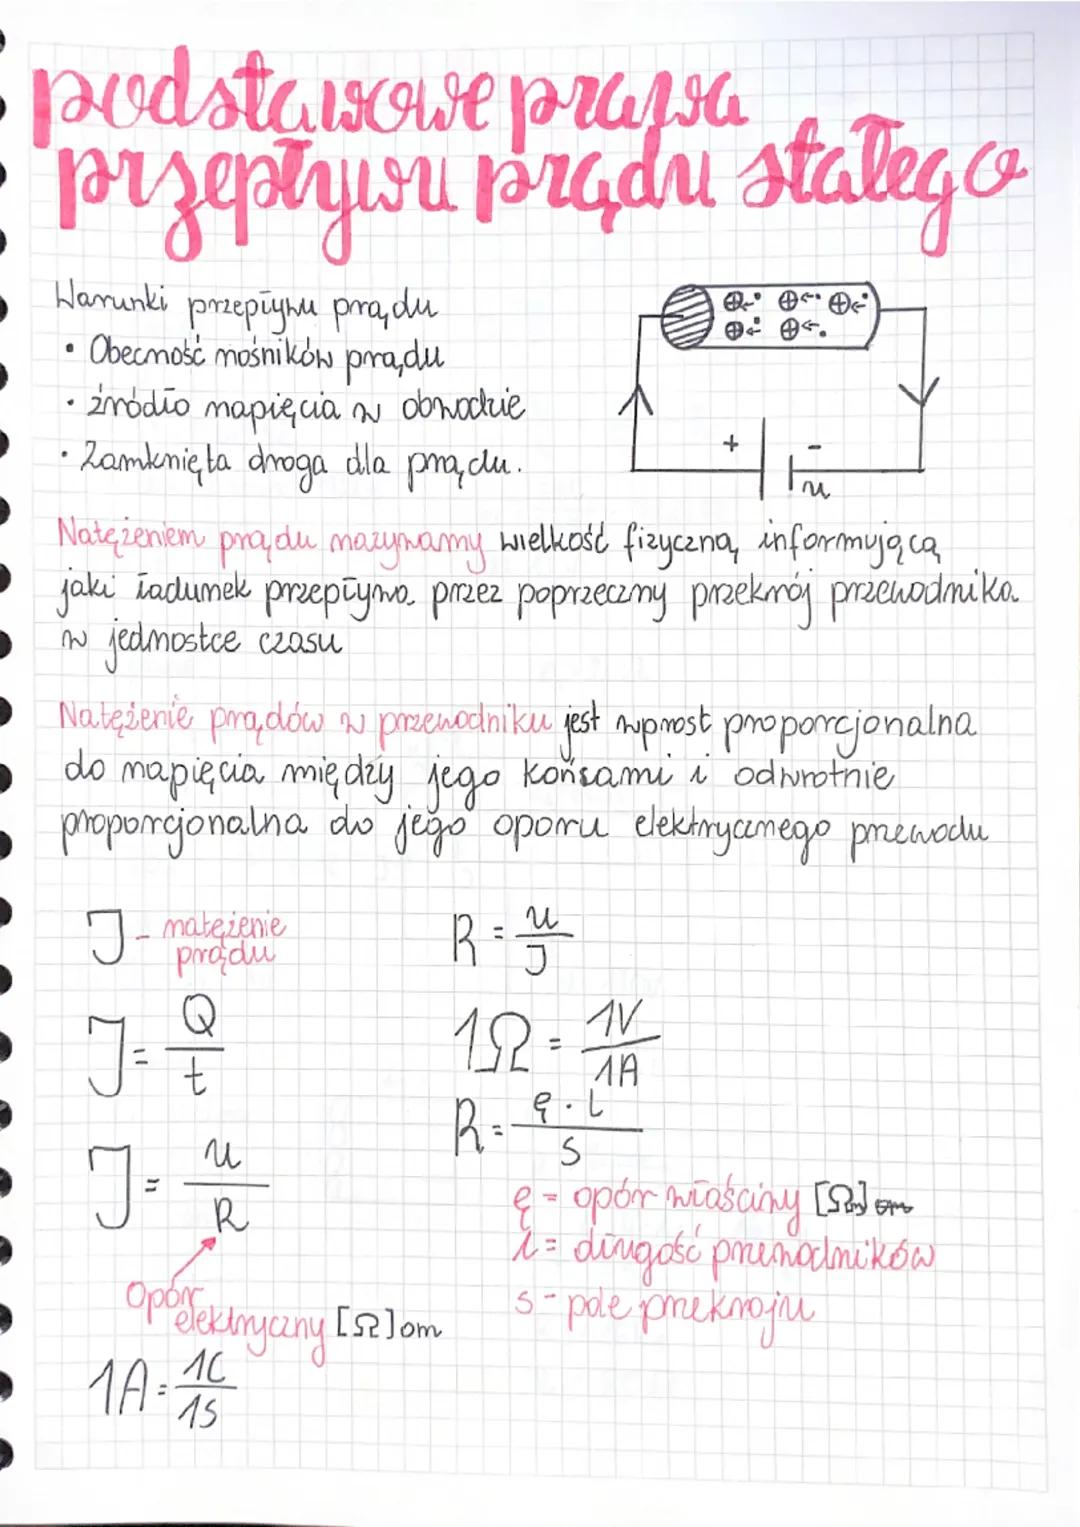 podstawowe prawa
przepływu prądu stałego
Warunki przepływu prądu
• Obecność nośników prądu
• źródło napięcia w obwodzie
• Zamknięta droga dla prądu.
+ -
u
Natężeniem prądu nazywamy wielkość fizyczną informującą
jaki ładunek przepływa przez poprzeczny przekrój przewodnika
w jednostce czasu
Natężenie prądów w przewodniku jest wprost proporcjonalna
do napięcia między jego końcami i odwrotnie
proporcjonalna do jego oporu elektrycznego przewodu
J - natężenie
prądu
J = Q/t
J = u/R
Opór
elektryczny [Ω] om
1A = 1C/1s
R = u/J
1Ω = 1V/1A
R = ρ · l/s
ρ = opór właściwy [Ωm]
l = długość przewodników
s - pole przekroju